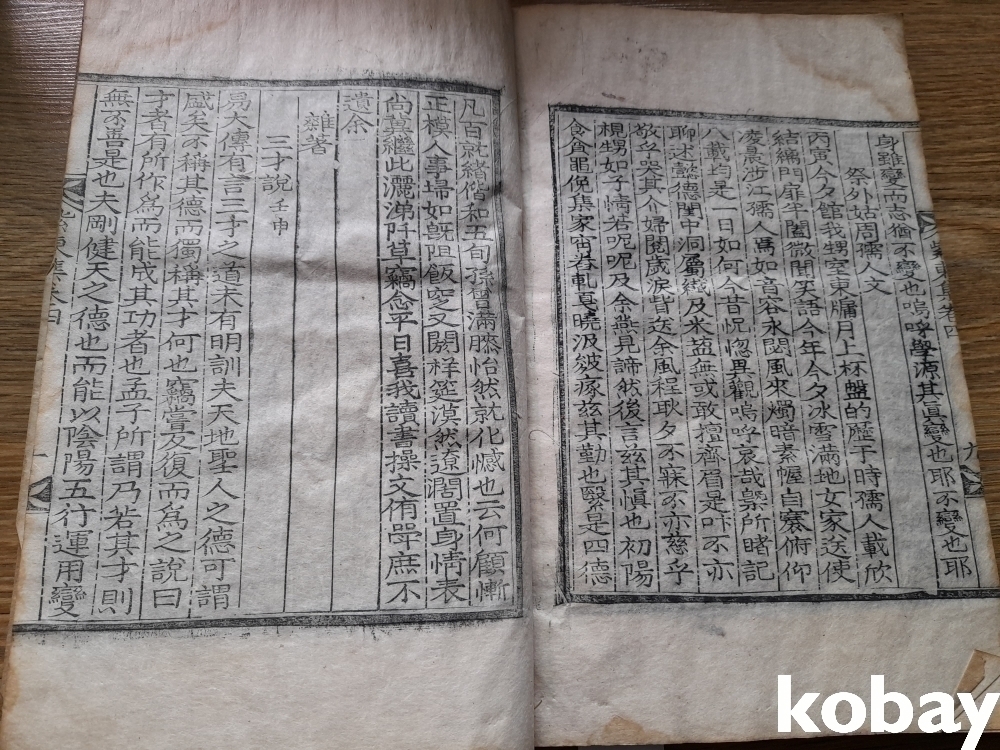 身雖變而志猶不變也嗚呼學源其眞變也耶不變也耶
祭外姑周孺人文
丙寅今夕館我甥室東牗月上杯盤的歷于時孺人載欣
結縭門扉半闔微聞笑語今年今夕冰雪滿地女家送使
凌晨涉江孺人焉如音容永閟風來燭暗素幄自褰俯仰
八載均是一日如何今昔怳惚異觀嗚呼哀哉槩所睹記
聊述懿德閨中洞屬織及米鹽無或敢擅齊眉是吁不亦
敬乎哭其介婦閱歲淚皆送余風程耿夕不寐不亦慈乎
視甥如子情若呢呢及余燕見諦然後言玆其愼也初陽
食食黽俛集家宙若軋夏曉汲皴瘃玆其勤也緊是四德
凡百就緖偕和五旬孫曾滿膝怡然就化憾也云何顧慚
正模人事埽如旣阻飯窆又闕祥筵漠然遼濶置身情表
尚冀繼此灑涕阡草竊念平日喜我讀書操文侑學庶不
遺余
雜著
三才說 壬申
易大傳有言三才之道未有明訓夫天地聖人之德可謂
盛矣不稱其德而獨稱其才何也竊嘗反復而爲之說曰
才者有所作爲而能成其功者也孟子所謂乃若其才則
無不善是也夫剛健天之德也而能以陰陽五行運用變
東集卷四
九
kobay